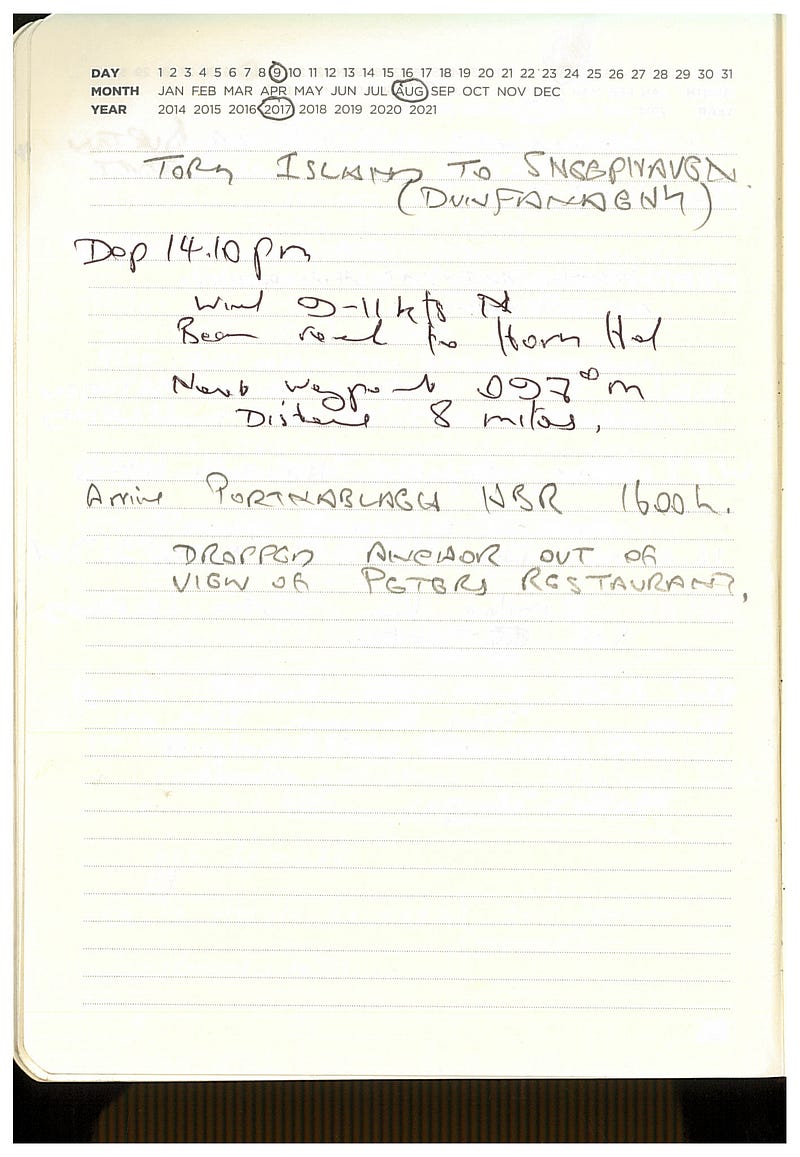 DAY 1 2 3 4 5 6 7 8 9 10 11 12 13 14 15 16 17 18 19 20 21 22 23 24 25 26 27 28 29 30 31
MONTH JAN FEB MAR APR MAY JUN JUL AUG SEP OCT NOV DEC
YEAR 2014 2015 2016 2017 2018 2019 2020 2021
TORY ISLAND TO SHEEPHAVEN
(DUNFANAGHY)
Dep 14.10 pm
Wind 9-11 kts N
Beam reach to Horn Hd
Next waypoint 097° m
Distance 8 miles,
Arrive PORTNABLAGH HBR 1600h.
DROPPED ANCHOR OUT OF
VIEW OF PETERS RESTAURANT,